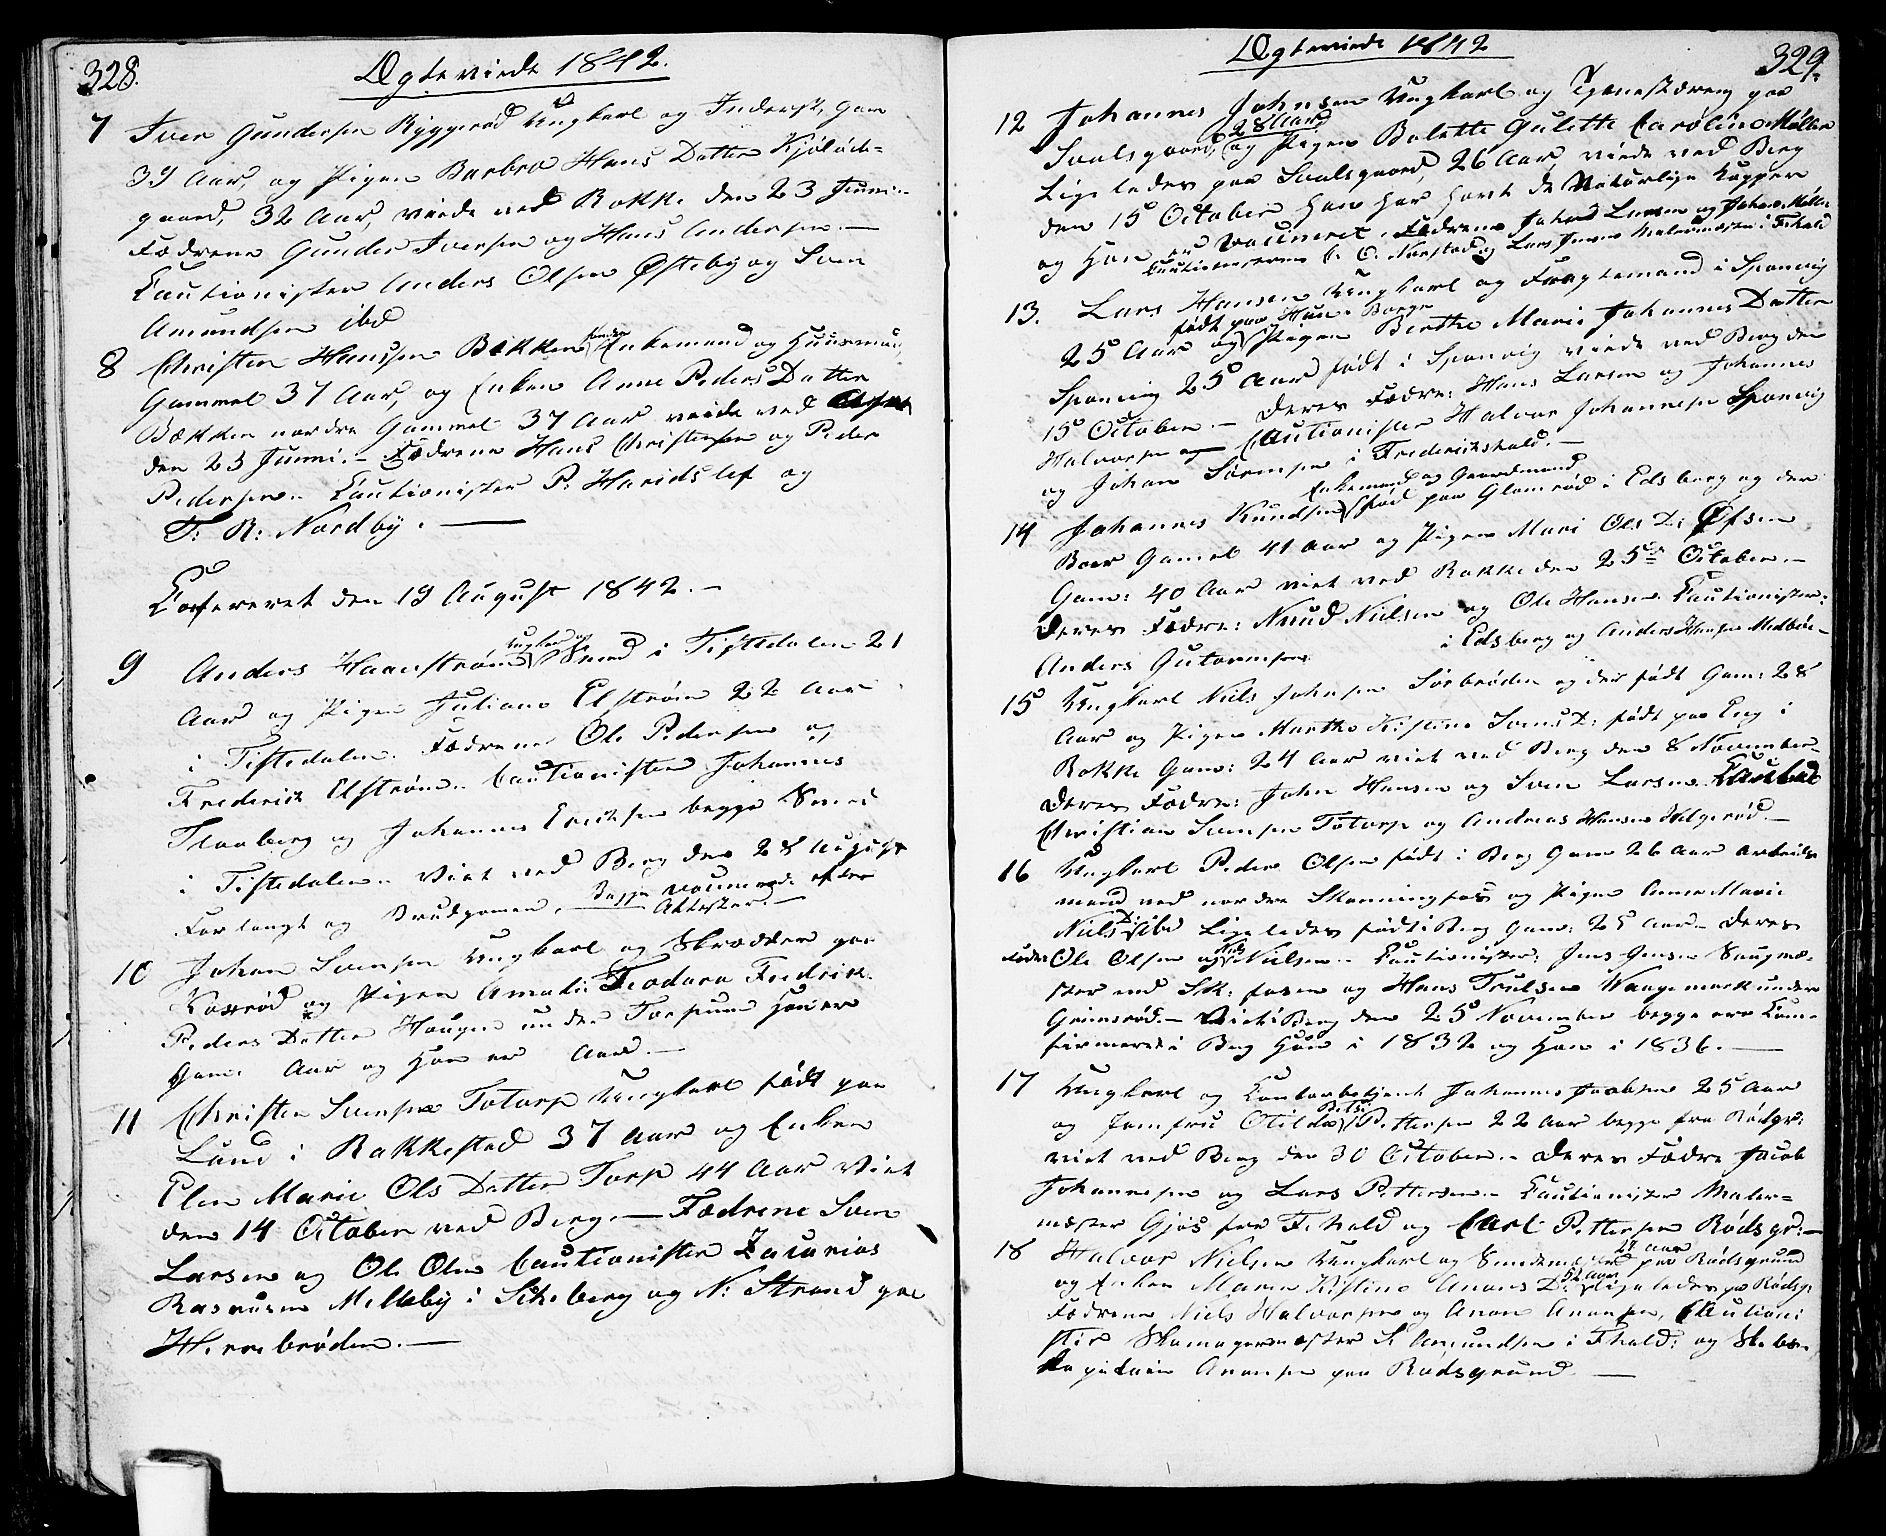 328.
Ægteviede 1842.
7 Iver Gundersen Ryggerød Ungkarl og Inderst, Gam
39 Aar, og Pigen Barbra Hans Datter Kjøløe-
gaard, 32 Aar, viede ved Rokke den 23 Junii.
Fædrene Gunder Iversen og Hans Andersen.—
Cautionister Anders Olsen Østeby og Sven
Amundsen ibd
8 Christen Hansen Bækken nordre Enkemand og Huusmand,
Gammel 37 Aar, og Enken Anne Peders Datter
Bækken nordre Gammel 37 Aar viede ved
den 23 Junii.- Fædrene Hans Christensen og Peder
Pedersen.- Cautionister P. Haridslef og
T. R. Nordby.—
Confereret den 19 August 1842.-
9 Anders Haanstrøm Ungkarl Smed i Tistedalen 21
Aar og Pigen Juliane Elstrøm 22 Aar
i Tistedalen. Fædrene Ole Pedersen og
Frederick Elstrøm. Cautionister Johannes
Flaaberg og Johannes Ericksen begge Smed
i Tistedalen. Viet ved Berg den 28 August
Forlangt og Brudgomen, Begge vaccinerede efter
Attester.—
10 Johan Svensen Ungkarl og Skrædder paa
Kaxrød og Pigen Amalie Teodora Fredrik.
Peders Datter Haugen under Torpum Han er
Gam: Aar og Hun er Aar.—
11 Christen Svensen Totorp Ungkarl født paa
Lund i Rakkestad 37 Aar og Enken
Elen Marie Ols Datter Torp 44 Aar Viet
den 14 October ved Berg.— Fædrene Sven
Larsen og Ole Olsen Cautionister Zacarias
Rasmusen Melleby i Skieberg og N: Strand paa
Herrebrøden.—
329.
Ægteviede 1842
12 Johannes Johnsen Ungkarl og Tjenestdreng paa
Saalsgaard, 28 Aar og Pigen Bolette Gulette Carøline Møller
Ligeledes paa Saalsgaard, 26 Aar, viede ved Berg
den 15 October han har havt de Naturlige Kopper
og Hun er Vaccineret. Fædrene Johns Larsen og Johan Møller
Cautionisterne C. O. Norstad og Lars Jensen Malermester i Frhald
13. Lars Hansen Ungkarl og Fragtemand i Sponvig
født paa Hun i Borge
25 Aar og Pigen Birthe Marie Johannes Datter
Sponvig 25 Aar født i Sponvig viede ved Berg den
15 October.- Deres Fædre: Hans Larsen og Johannes
Halvorsen og Cautionister Halvor Johannesen Sponvig
og Johan Sørensen i Frederikshald.-
14 Johannes Knudsen Enkemand og Gaardmand, fød paa Glomrød i Edsberg og der
Boer Gamel 41 Aar og Pigen Mari Ols D:
Gam: 40 Aar viet ved Rokke den 25de October.-
Deres Fædre: Knud Nielsen og Ole Hansen Cautionister:
Anders Gutormsen i Edsberg og Anders Hansen Midbøe-
15 Ungkarl Niels Johnsen Sørbrøden og der født Gam: 28
Aar og Pigen Marthe Kistine Svens D: født paa Eng i
Rokke Gam: 24 Aar viet ved Berg den 8 November
Deres Fædre: John Hansen og Sven Larsen
Christian Svensen Totorp og Andreas Hansen Helgerød.-
16 Ungkarl Peder Olsen født i Berg Gam 26 Aar Arbeids
mand ved nordre Skonningfos og Pigen Anne Marie
Niels D: ibd Ligeledes født i Berg Gam: 25 Aar. Deres
Fædre Ole Olsen og Niels Nielsen.- Cautionister: Jens Jensen Saugmæ-
ster ved Sk: fosen og Hans Truelsen Wangemark under
Grimsrød.- Viet i Berg den 25 November begge ere Con-
firmeret i Berg Han i 1832 og Hun i 1836.—
17 Ungkarl og Contorbetjent Johannes Jacobsen 25 Aar
og Jomfru Otilde Betsi Pettersen 22 Aar begge fra Rødsgr:
viet ved Berg den 30 October.- Deres Fædre Jacob
Johannesen og Lars Pettersen.- Cautionister Maler-
mæster Gjøs fra Frhald og Carl Pettersen Rødsgr:—
18 Halvor Nielsen Ungkarl og 27 Aar paa Rødsgrund
og Enken Maren Kistine Anons D: 52 Aar Ligeledes paa Rødsgr.
Fædrene Niels Halvorsen og Anon Anonsen, Cautioni
ster Skomagermæster S. Amundsen i Frhald: og Skibs
Kapitain Anonsen paa Rødsgrund.—